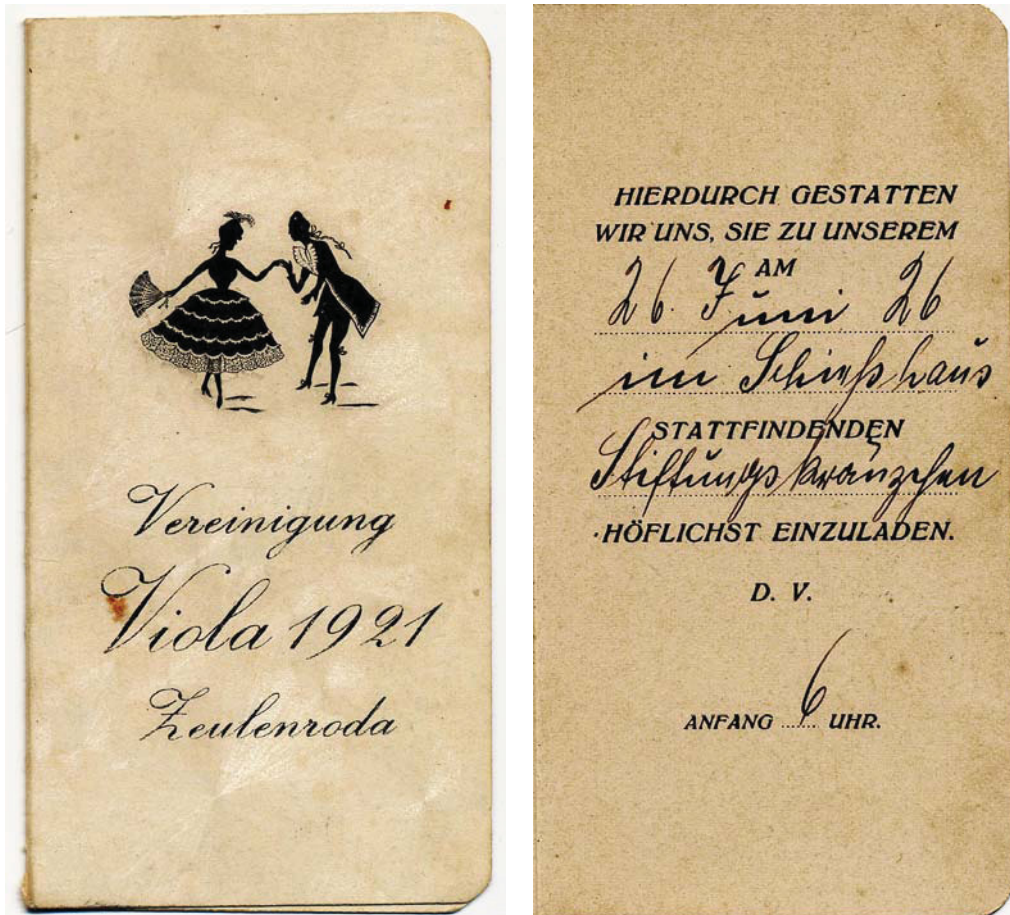 Vereinigung
Viola 1921
Zeulenroda
HIERDURCH GESTATTEN
WIR UNS, SIE ZU UNSEREM
AM
26. Juni 26
im Schießhaus
STATTFINDENDEN
Stiftungskränzchen
HÖFLICHST EINZULADEN.
D. V.
ANFANG 6 UHR.